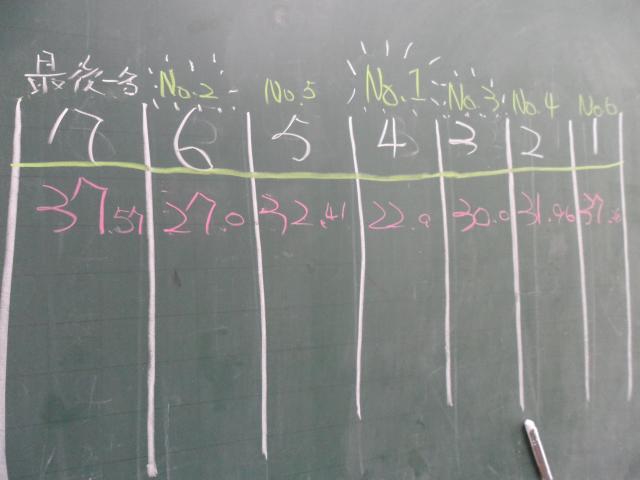 最後一名 No.2 No.5 No.1 No.3 No.4 No6
7 6 5 4 3 2 1
37.57 27.0 32.41 22.9 30.0 31.96